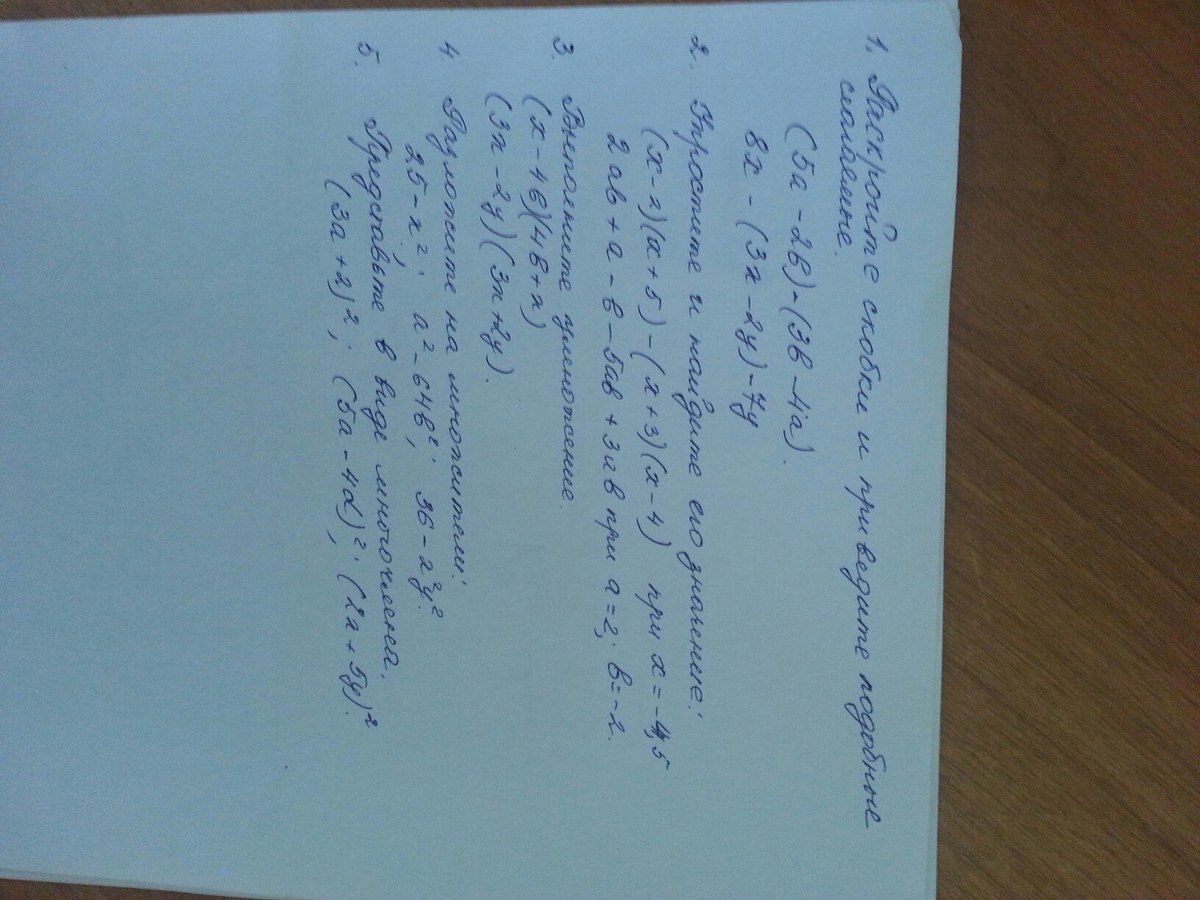 1. Раскройте скобки и приведите подобные
слагаемые.
(5a - 2b) - (3b - 4a).
8x - (3x - 2y) - 7y
2. Упростите и найдите его значение:
(x-2)(x+5) - (x+3)(x-4) при x = -4,5
2ab + a - b - 5ab + 3ab при a=2; b=-2.
3. Выполните умножение.
(x - 4b)(4b + x)
(3x - 2y)(3x+2y).
4. Разложите на множители:
25 - x²; a² - 64b²; 36 - x²y².
5. Представьте в виде многочлена.
(3a + 2)²; (5a - 4d)²; (2x + 5y)²